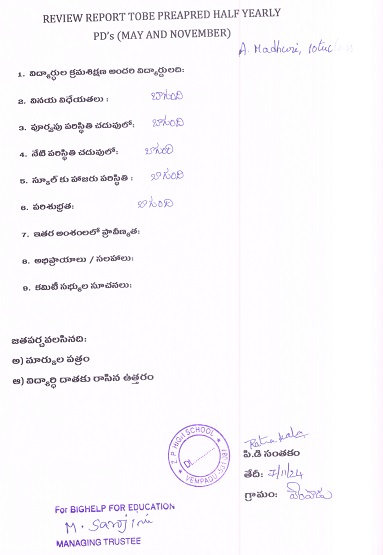 REVIEW REPORT TOBE PREAPRED HALF YEARLY
PD's (MAY AND NOVEMBER)
A. Madhuri, 10th
1. విద్యార్థుల క్రమశిక్షణ అందరి విద్యార్థులది:
2. వినయ విధేయతలు : బాగుంది
3. పూర్వపు పరిస్థితి చదువులో: బాగుంది
4. నేటి పరిస్థితి చదువులో: బాగుంది
5. స్కూల్ కు హాజరు పరిస్థితి : బాగుంది
6. పరిశుభ్రత: బాగుంది
7. ఇతర అంశంలలో ప్రావీణ్యత:
8. అభిప్రాయాలు / సలహాలు:
9. కమిటీ సభ్యుల సూచనలు:
జతపర్చవలసినది:
అ) మార్కుల పత్రం
ఆ) విద్యార్థి దాతకు రాసిన ఉత్తరం
Z.P. HIGH SCHOOL
Dt
VEMPADU-531 126
పి.డి సంతకం
తేదీ: 7/11/24
గ్రామం:
For BIGHELP FOR EDUCATION
M. Sarojini
MANAGING TRUSTEE